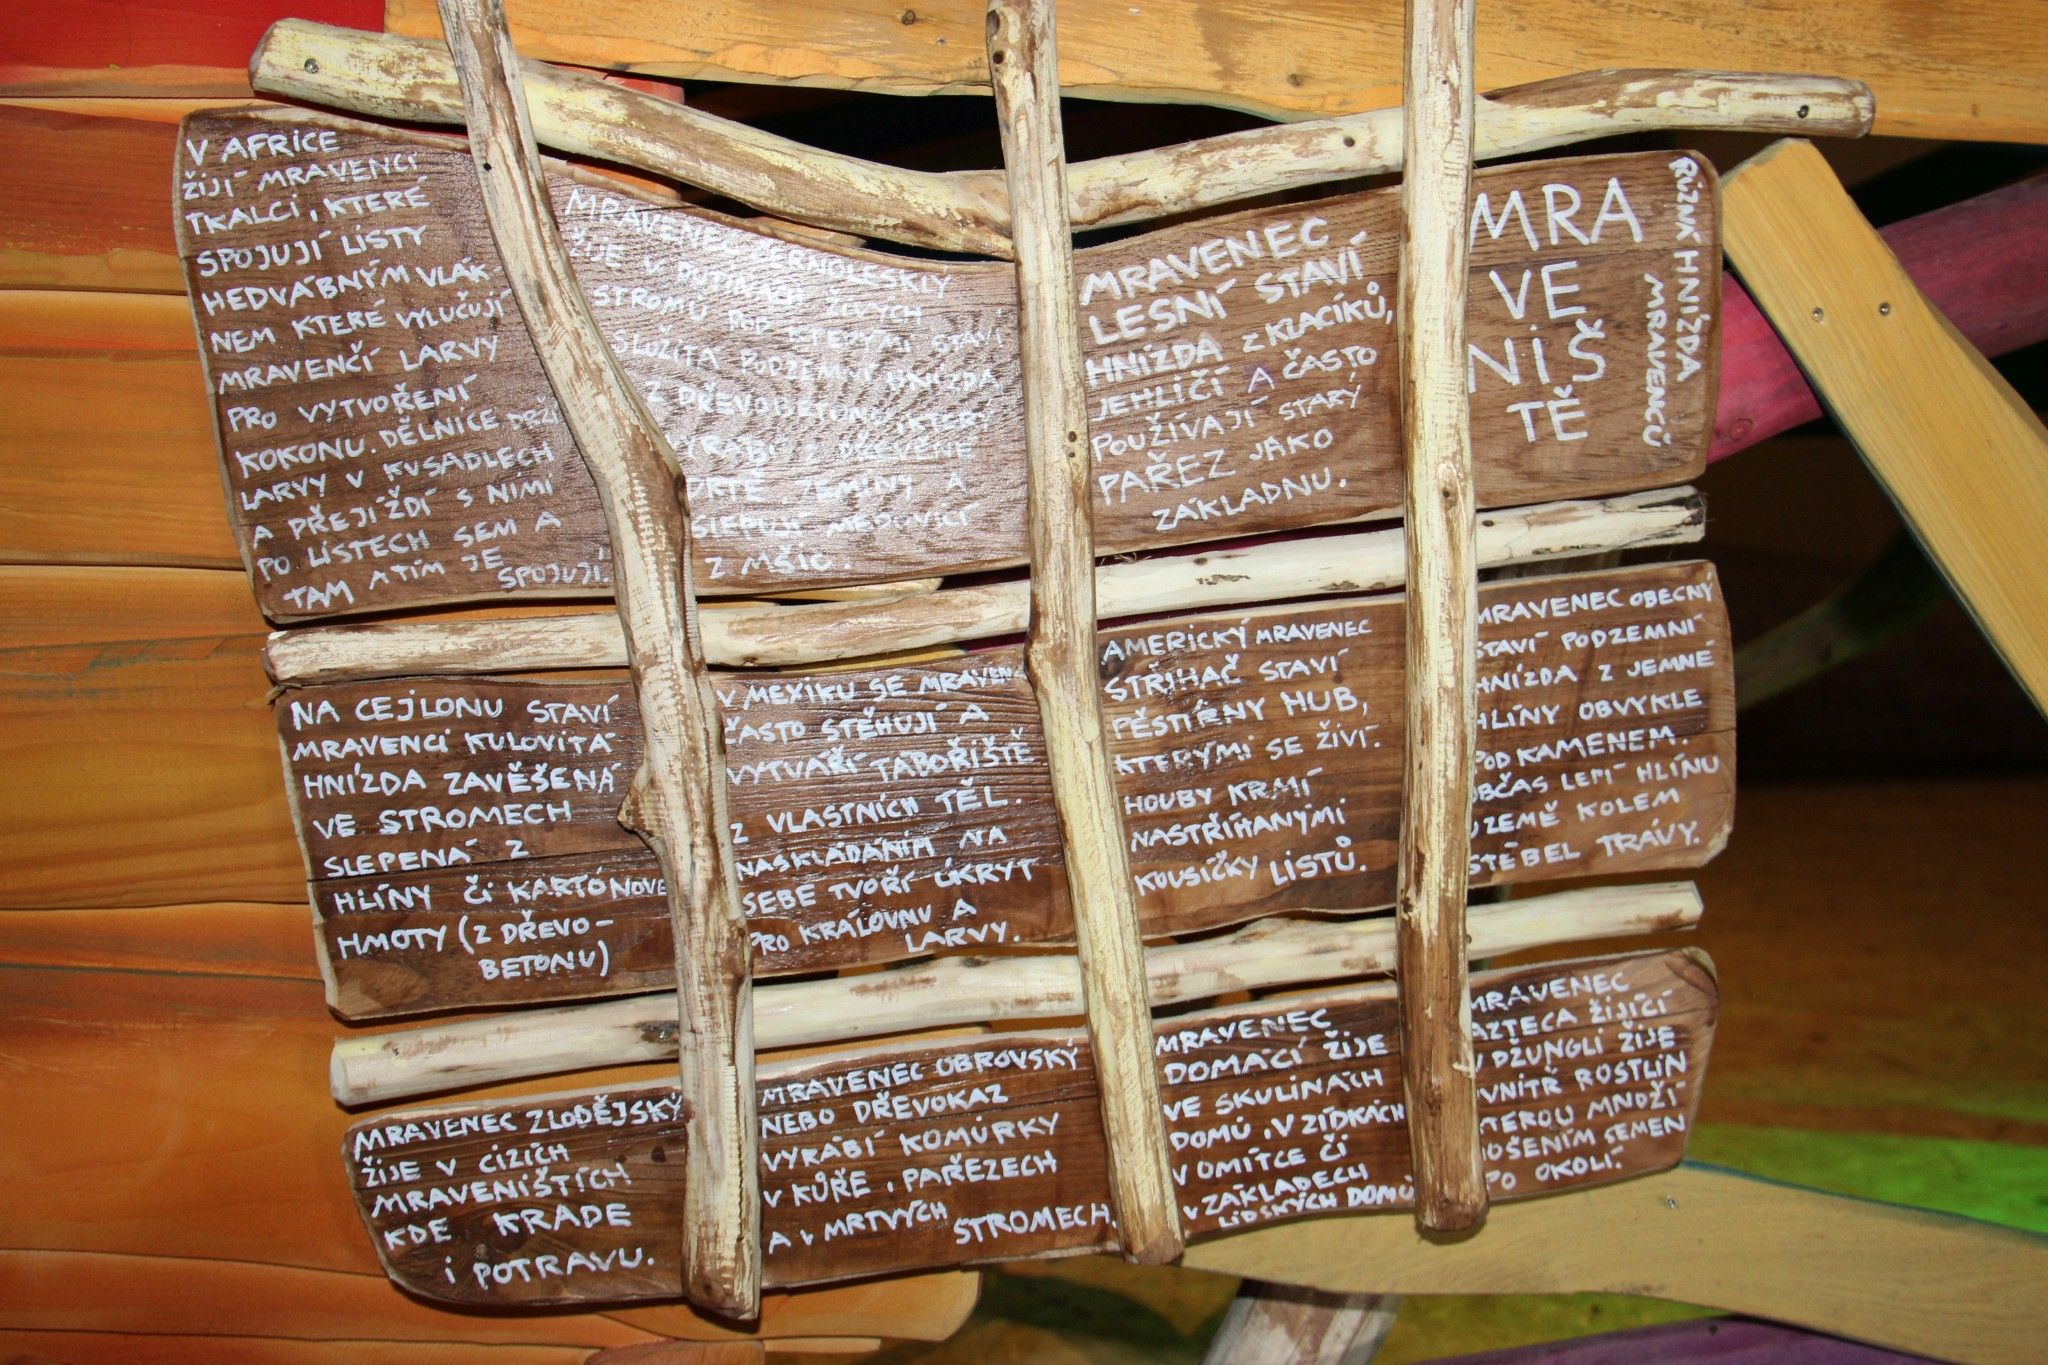 V AFRICE
ŽIJÍ MRAVENCI
TKALCI, KTERÉ
SPOJUJÍ LISTY
HEDVÁBNÝM VLÁK-
NEM KTERÉ VYLUČUJÍ
MRAVENČÍ LARVY
PRO VYTVOŘENÍ
KOKONU. DĚLNICE DRŽÍ
LARVY V KUSADLECH
A PŘEJÍŽDÍ S NIMI
PO LISTECH SEM A
TAM A TÍM JE
SPOJUJÍ.
MRAVENEC ČERNOLESKLÝ
ŽIJE V DUTINÁCH ŽIVÝCH
STROMŮ POD KTERÝMI STAVÍ
SLOŽITÁ PODZEMNÍ HNÍZDA
Z DŘEVOBETONU, KTERÝ
VYRÁBÍ Z DŘEVĚNÉ
DRTĚ ZEMINY A
SLEPUJÍ MEDOVICÍ
Z MŠIC.
MRAVENEC
LESNÍ STAVÍ
HNÍZDA Z KLACÍKŮ,
JEHLIČÍ A ČASTO
POUŽÍVAJÍ STARÝ
PAŘEZ JAKO
ZÁKLADNU.
MRA
VE
NIŠ
TĚ
RŮZNÁ HNÍZDA
MRAVENCŮ
NA CEJLONU STAVÍ
MRAVENCI KULOVITÁ
HNÍZDA ZAVĚŠENÁ
VE STROMECH
SLEPENÁ Z
HLÍNY ČI KARTÓNOVÉ
HMOTY (Z DŘEVO-
BETONU)
V MEXIKU SE MRAVENCI
ČASTO STĚHUJÍ A
VYTVÁŘÍ TÁBOŘIŠTĚ
Z VLASTNÍCH TĚL.
NASKLÁDÁNÍM NA
SEBE TVOŘÍ ÚKRYT
PRO KRÁLOVNU A
LARVY.
AMERICKÝ MRAVENEC
STŘIHAČ STAVÍ
PĚSTÍRNY HUB,
KTERÝMI SE ŽIVÍ.
HOUBY KRMÍ
NASTŘÍHANÝMI
KOUSÍČKY LISTŮ.
MRAVENEC OBECNÝ
STAVÍ PODZEMNÍ
HNÍZDA Z JEMNÉ
HLÍNY OBVYKLE
POD KAMENEM.
OBČAS LEPÍ HLÍNU
U ZEMĚ KOLEM
STÉBEL TRÁVY.
MRAVENEC ZLODĚJSKÝ
ŽIJE V CIZÍCH
MRAVENIŠTÍCH
KDE KRADE
I POTRAVU.
MRAVENEC OBROVSKÝ
NEBO DŘEVOKAZ
VYRÁBÍ KOMŮRKY
V KŮŘE, PAŘEZECH
A V MRTVÝCH
STROMECH.
MRAVENEC
DOMÁCÍ ŽIJE
VE SKULINÁCH
DOMŮ, V ZÍDKÁCH
V OMÍTCE ČI
V ZÁKLADECH
LIDSKÝCH DOMŮ
MRAVENEC
AZTECA ŽIJÍCÍ
V DŽUNGLI ŽIJE
UVNITŘ ROSTLIN
KTEROU MNOŽÍ
NOŠENÍM SEMEN
PO OKOLÍ.